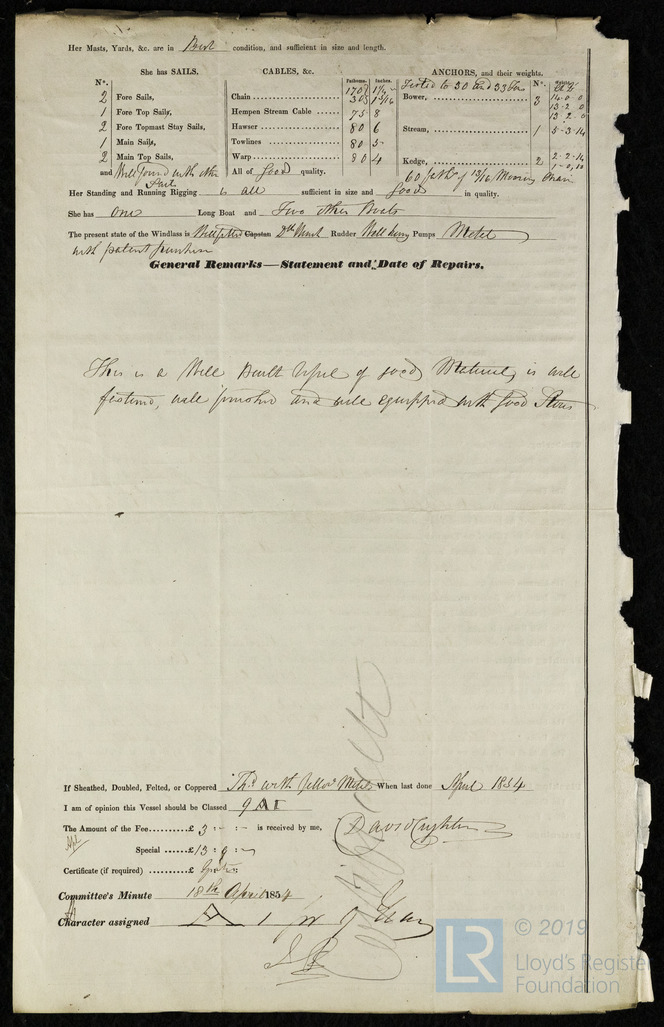 Her Masts, Yards, &c. are in Best condition, and sufficient in size and length.
She has SAILS.
N°.
2 Fore Sails,
1 Fore Top Sails,
2 Fore Topmast Stay Sails,
1 Main Sails,
2 Main Top Sails,
and Well found with other
Sails
CABLES, &c. Fathoms. Inches.
Chain
Hempen Stream Cable 75 - 8
Hawser 80 6
Towlines 80 5
Warp 80 4
All of good quality.
ANCHORS, and their weights.
Tested to 30 and 33 Tons N°.
Bower, 3 14 - 0 0
13 - 2 0
13 2 0
Stream, 1 5 - 3 - 14
Kedge, 2 2 - 2 - 14
1 - 0, 10
60 faths of 13/16 Mooring Chain
Her Standing and Running Rigging is all sufficient in size and good in quality.
She has one Long Boat and Two other Boats
The present state of the Windlass is Well fitted Capstan Do Rudder Well hung Pumps Metal
with patent purchase
General Remarks—Statement and Date of Repairs.
This is a Well Built Vessel of good Materials, is well
fastened, well finished and well equipped with good Stores
If Sheathed, Doubled, Felted, or Coppered with Yellow Metal When last done April 1854
I am of opinion this Vessel should be Classed 9 A 1
The Amount of the Fee......£ 3 : - : - is received by me,
Special ......£ 13 : 9 : -
Certificate (if required) ......£ Gratis
Committee's Minute 18th April 1854
Character assigned A 1 for 9 Years
LR
© 2019
Lloyd's Register
Foundation